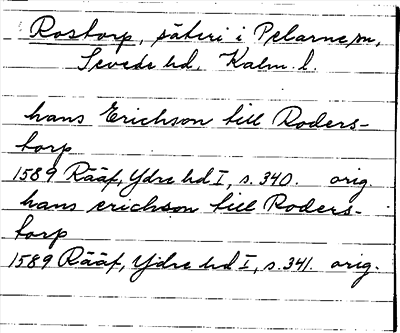 Rostorp, säteri i Pelarne sn,
Sevede hd, Kalm. l.
hans Erichson till Roders-
torp
1589 Rääf, Ydre hd I, s. 340. orig.
hans erichson till Roders-
torp
1589 Rääf, Ydre hd I, s. 341. orig.